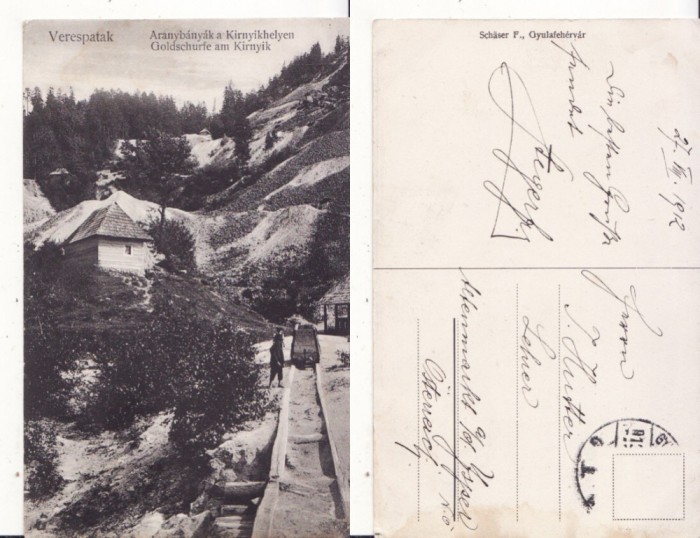 Verespatak
Aranybányák a Kirnyikhelyen
Goldschurfe am Kirnyik
Schäser F., Gyulafehérvár
27. VIII. 1912
Die besten Grüße
sendet
Herrn
J. Hutter
Lehrer
Altenmarkt a/d. Ysper
N.Ö.
Österreich